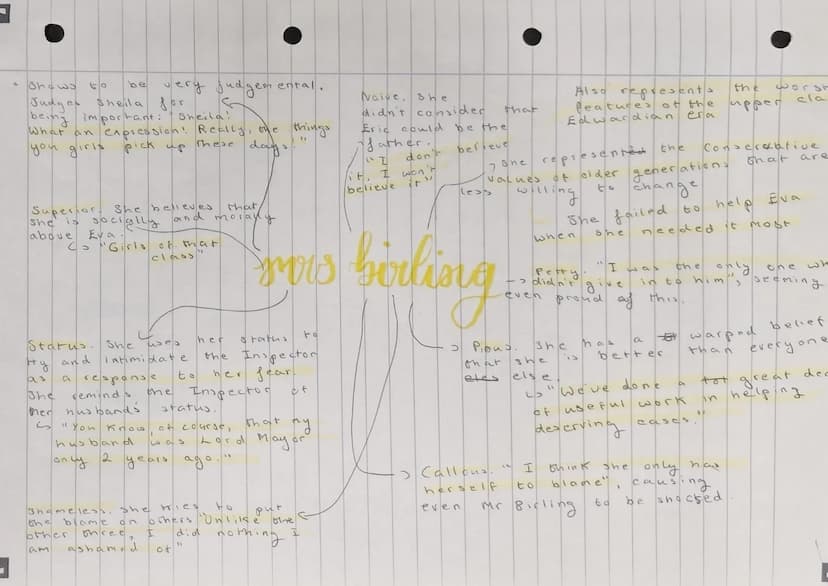 • Shows to be very judgemental.
Judges Sheila for
being important: "Sheila!
What an expression! Really, the things
you girls pick up these days!"
Superior. She believes that
she is socially and morally
above Eva.
↳ "Girls of that
class"
Status. She uses her status to
try and intimidate the Inspector
as a response to her fear.
She reminds the Inspector of
her husbands' status.
↳ "You know, of course, that my
husband was Lord Mayor
only 2 years ago."
Shameless. She tries to put
the blame on others "Unlike the
other three, I did nothing I
am ashamed of"
Naive. She
didn't consider that
Eric could be the
father.
"I don't believe
it. I won't
believe it"
mrs birling
Also represents the worst
features of the upper cla
Edwardian era
She represented the Conservative
values of older generations that are
less willing to change
She failed to help Eva
when she needed it most
→ Petty. "I was the only one wh
didn't give in to him", seeming
even proud of this.
→ Pious. She has a warped belief
that she is better than everyone
else.
↳ "We've done a great dea
of useful work in helping
deserving cases."
→ Callous. "I think she only has
herself to blame", causing
even Mr Birling to be shocked.